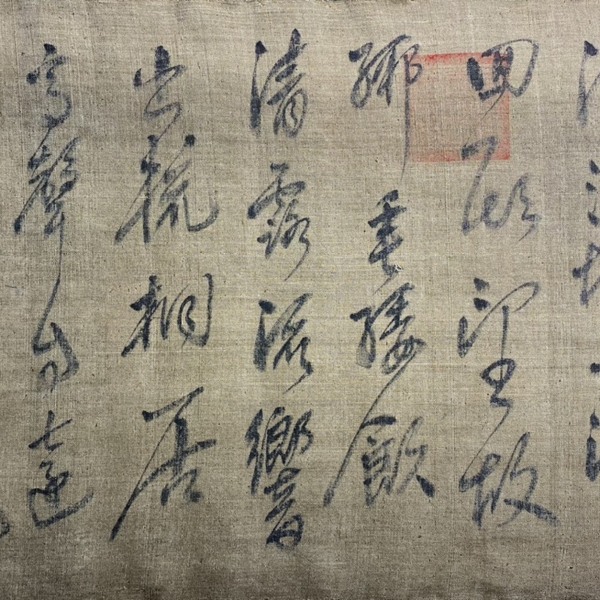 回顧望故
鄉垂緌飲
清露流響
出疏桐居
高聲自遠